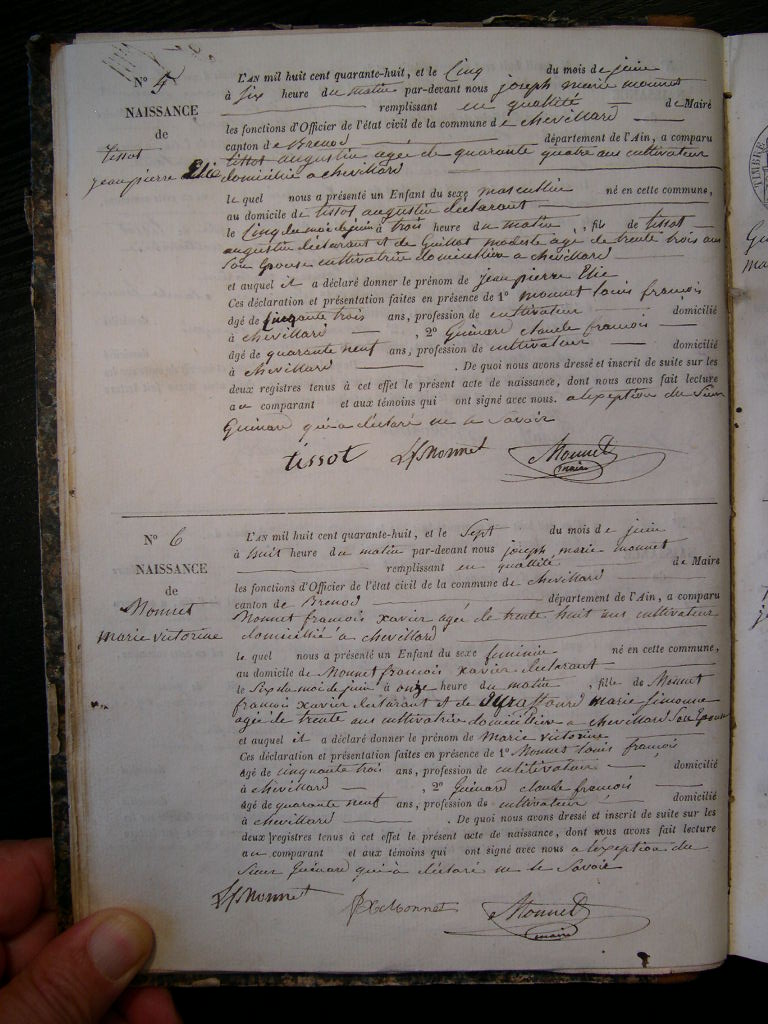 N° 5
NAISSANCE
de
tissot
jean pierre Elie
L'AN mil huit cent quarante-huit, et le Cinq du mois de juin
à Six heure du matin par-devant nous joseph marie monnet
remplissant en quallité de Maire
les fonctions d'Officier de l'état civil de la commune de chevillard
canton de Brenod département de l'Ain, a comparu
tissot augustin agée de quarante quatre ans cultivateur
domicilié a chevillard
le quel nous a présenté un Enfant du sexe mascullin né en cette commune,
au domicile de tissot augustin déclarant
le Cinq du mois de juin à trois heure du matin, fils de tissot
augustin déclarant et de Guillot modeste agé de trente trois ans
son Epouse cultivatrice domicilliée a chevillard
et auquel il a déclaré donner le prénom de jean pierre Elie
Ces déclaration et présentation faites en présence de 1° monnet louis françois
âgé de Cinquante trois ans, profession de cultivateur domicilié
à chevillard , 2° Guinard claude francois
âgé de quarante neuf ans, profession de cultivateur domicilié
à chevillard . De quoi nous avons dressé et inscrit de suite sur les
deux registres tenus à cet effet le présent acte de naissance, dont nous avons fait lecture
au comparant et aux témoins qui ont signé avec nous. a lexeption du Sieur
Guinard qui a déclaré ne le Savoir
tissot LfMonnet Monnet
maire
N° 6
NAISSANCE
de
Monnet
marie victorine
L'AN mil huit cent quarante-huit, et le Sept du mois de juin
à huit heure du matin par-devant nous joseph marie monnet
remplissant en quallité de Maire
les fonctions d'Officier de l'état civil de la commune de chevillard
canton de Brenod département de l'Ain, a comparu
Monnet francois xavier agée de trente huit ans cultivateur
domicillié a chevillard
le quel nous a présenté un Enfant du sexe feminin né en cette commune,
au domicile de Monnet francois xavier declarant
le Six du moi de juin à onze heure du matin, fille de Monnet
francois xavier declarant et de marie simonne
agée de trente ans cultivatrice domicillière a chevillard son Epouse
et auquel il a déclaré donner le prénom de Marie victorine
Ces déclaration et présentation faites en présence de 1° Monnet louis françois
âgé de cinquante trois ans, profession de cultivateur domicilié
à chevillard , 2° Guinard claude francois
âgé de quarante neuf ans, profession de cultivateur domicilié
à chevillard . De quoi nous avons dressé et inscrit de suite sur les
deux registres tenus à cet effet le présent acte de naissance, dont nous avons fait lecture
au comparant et aux témoins qui ont signé avec nous a lexeption du
Sieur Guinard qui à déclaré ne le Savoir
LfMonnet fXMonnet Monnet
maire
TIMBRE